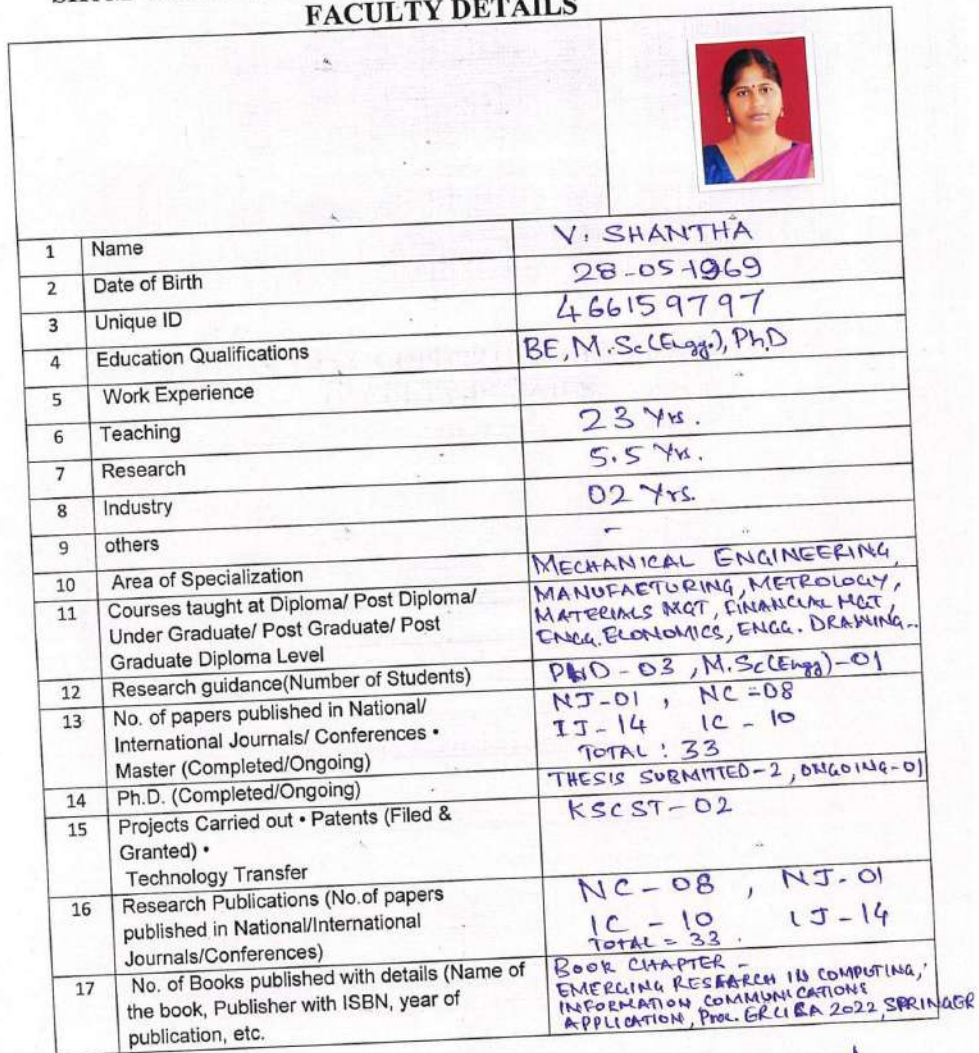 FACULTY DETAILS
1 Name V. SHANTHA
2 Date of Birth 28-05-1969
3 Unique ID 466159797
4 Education Qualifications BE, M.Sc(Engg.), Ph.D
5 Work Experience
6 Teaching 23 Yrs.
7 Research 5.5 Yrs.
8 Industry 02 Yrs.
9 others -
10 Area of Specialization MECHANICAL ENGINEERING,
11 Courses taught at Diploma/ Post Diploma/
Under Graduate/ Post Graduate/ Post
Graduate Diploma Level
MANUFACTURING, METROLOGY,
MATERIALS MGT, FINANCIAL MGT,
ENGG. ECONOMICS, ENGG. DRAWING..
12 Research guidance(Number of Students) PHD - 03, M.Sc(Engg) - 01
13 No. of papers published in National/
International Journals/ Conferences •
Master (Completed/Ongoing)
NJ-01, NC-08
IJ-14 IC - 10
TOTAL : 33
14 Ph.D. (Completed/Ongoing) THESIS SUBMITTED-2, ONGOING-01
15 Projects Carried out • Patents (Filed &
Granted) •
Technology Transfer
KSCST-02
16 Research Publications (No.of papers
published in National/International
Journals/Conferences)
NC-08, NJ-01
IC - 10 IJ-14
TOTAL = 33.
17 No. of Books published with details (Name of
the book, Publisher with ISBN, year of
publication, etc.
BOOK CHAPTER -
EMERGING RESEARCH IN COMPUTING,
INFORMATION, COMMUNICATIONS
APPLICATION, Proc. ERCICA 2022, SPRINGER